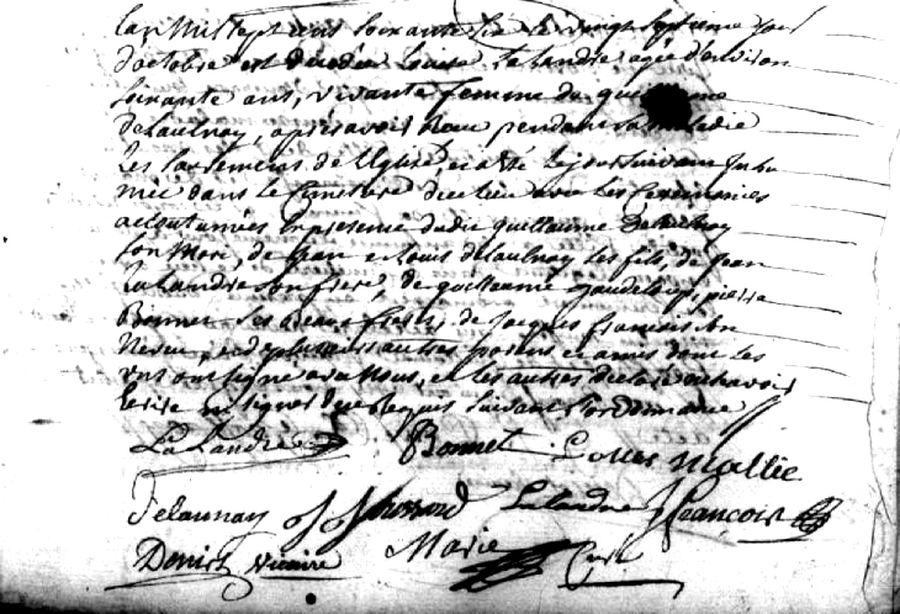 Lan Mil sept cens soixante six le vingt septieme jour
doctobre est décédée Louise Lalandre agée denviron
soixante ans, vivante femme de
delaulnay, après avoir Reçu pendant sa maladie
Les sacremens de L'Eglise, et a été le jour suivant Inhu
mée dans le Cimetiere du lieu avec les Ceremonies
accoutumées En présence dudit guillaume Delaulnay
son Mari, de Jean et Louis delaulnay ses fils, de Jean
Lalandre son frere, de guillaume pierre
Bonnet ses Beaux freres, de Jacques francois son
Neveu, et de plusieurs autres parens et amis dont les
uns ont signé avec Nous, et les autres déclaré ne savoir
Ecrire ni signer de ce Requis suivant l'ordonnance
LaLandre Bonnet Mallée
Delaunay Lalandre J francois
Denis vicaire Marie Curé